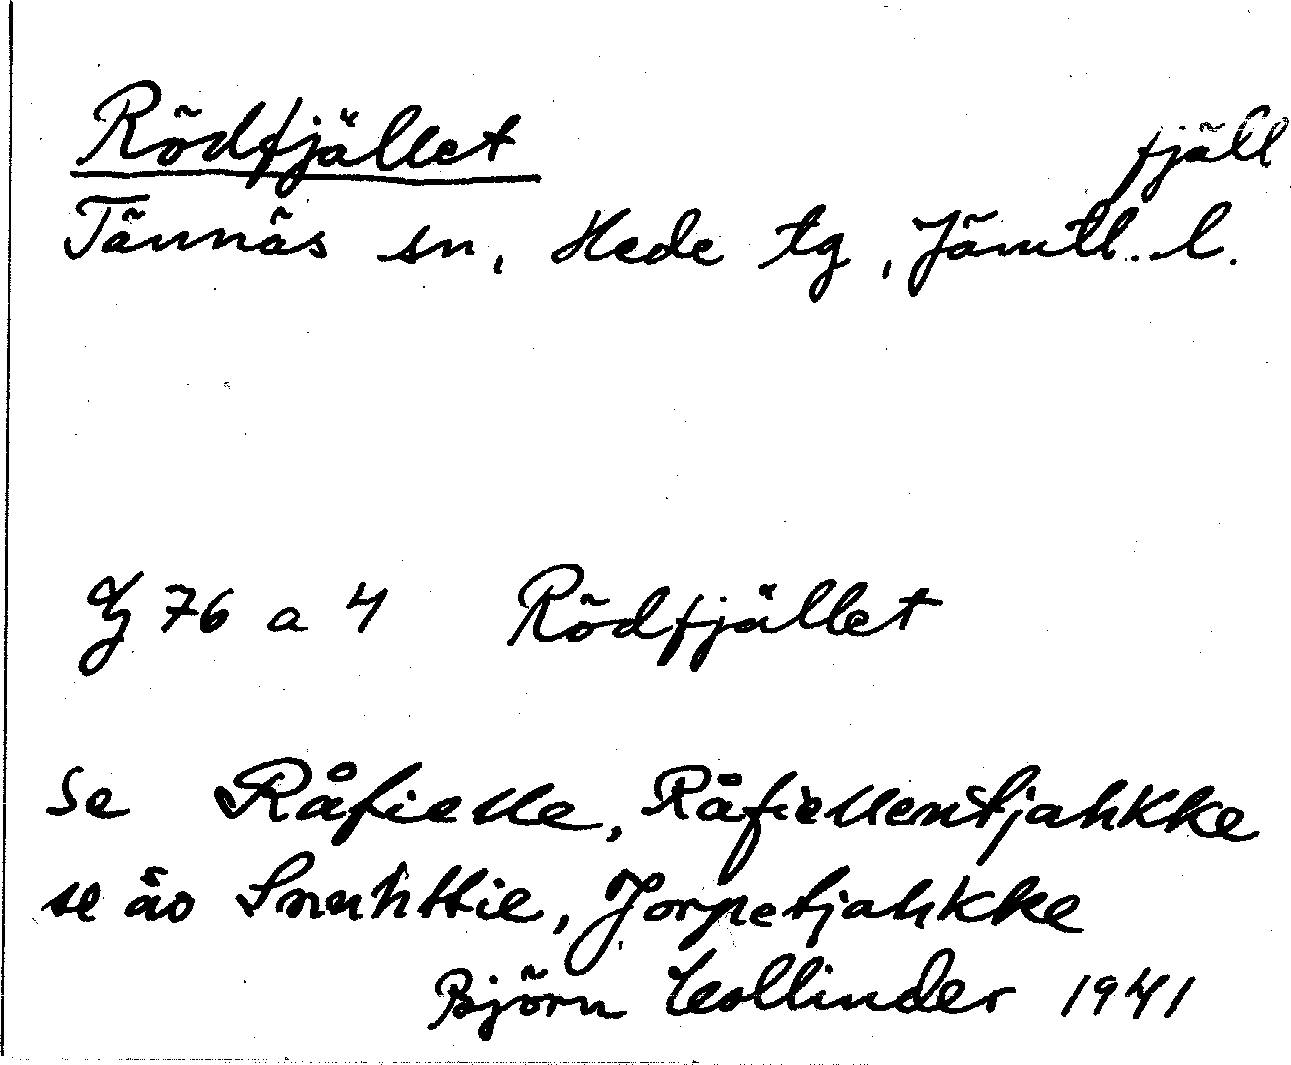 Rödfjället fjäll
Tännäs sn, Hede tg, Jämtl. l.
76 a 4 Rödfjället
Se Råfielle, Råfiellentjahkke
se äv Snuhttie, Jorpetjahkke
Björn Collinder 1941